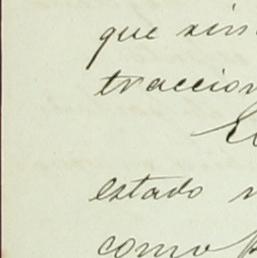 que sin
traccion
El
estado
como